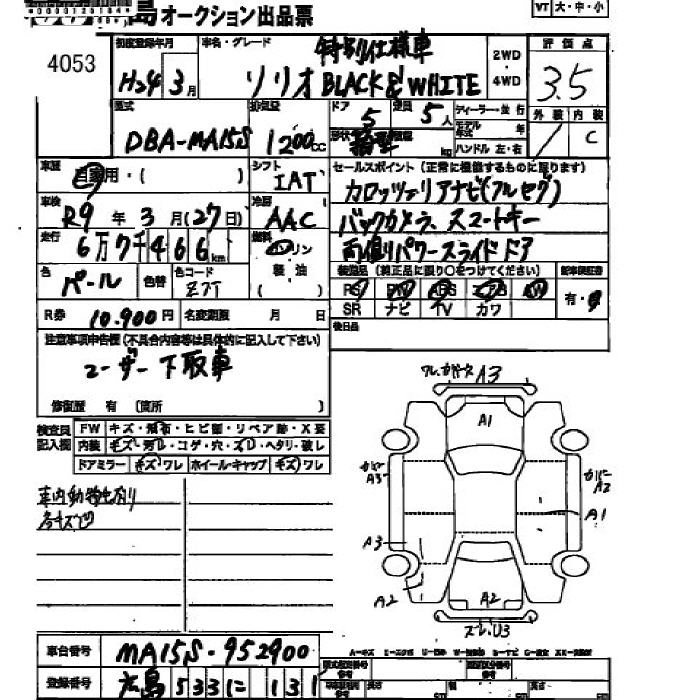 島オークション出品票
VT 大・中・小
4053
初度登録年月
H24 3月
車名・グレード
特別仕様車
ソリオ BLACK & WHITE
2WD
4WD
評価点
3.5
外装 内装
C
型式
DBA-MA15S
排気量
1200cc
ドア 5
定員 5人
形状
kg
ディーラー・並行
モデル年式 年
ハンドル 左・右
車歴
自家用・( )
シフト
IAT
車検
R9年 3月(27日)
冷房
AAC
走行
6万7千466km
燃料
ガソリン
軽油
( )
色
パール
色替
色コード
Z7T
R券 10.900円
名変期限 月 日
セールスポイント(正常に機能するものに限ります)
カロッツェリアナビ(フルセグ)
バックカメラ、スマートキー
両側パワースライドドア
装備品(純正品に限り○をつけてください)
新車保証書
PS PW ABS エアB AW
SR ナビ TV カワ
有・
後日品
注意事項申告欄(不具合内容等は具体的に記入して下さい)
ユーザー下取車
修復歴 有 〔箇所 〕
検査員記入欄
FW キズ・飛石・ヒビ割・リペア跡・X要
内装 キズ・汚れ・コゲ・穴・スレ・ヘタリ・破レ
ドアミラー キズ ワレ ホイールキャップ キズ ワレ
車内動物匂有り
各キズ凹
A3
A1
カバーA3
カバーA2
A1
A3
A2
A2
スレ、U3
車台番号 MA15S-952900
登録番号 広島 533 に 131